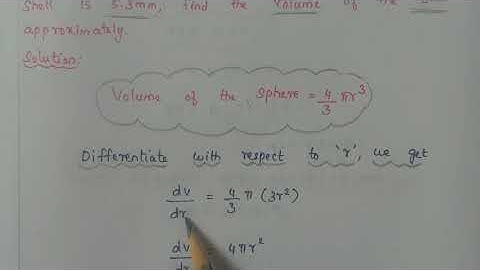 Shell is 5.3mm, find the Volume of the
approximately.
Solution:
Volume of the Sphere = 4/3 πr³
Differentiate with respect to 'r', we get
dv/dr = 4/3 π (3r²)
dv/dr = 4πr²